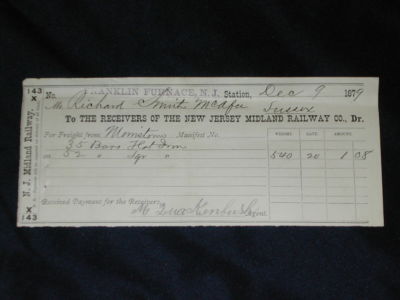 143
X
N. J. Midland Railway.
X
143
No. FRANKLIN FURNACE, N. J., Station, Dec 9 1879
Mr Richard Smith McAfee Sussex
To THE RECEIVERS OF THE NEW JERSEY MIDLAND RAILWAY CO., Dr.
For Freight from Manifest No. WEIGHT. RATE. AMOUNT.
35 Bars Flat Iron
32 " Sqr " 540 20 1 08
Received Payment for the Receivers,
Agent.